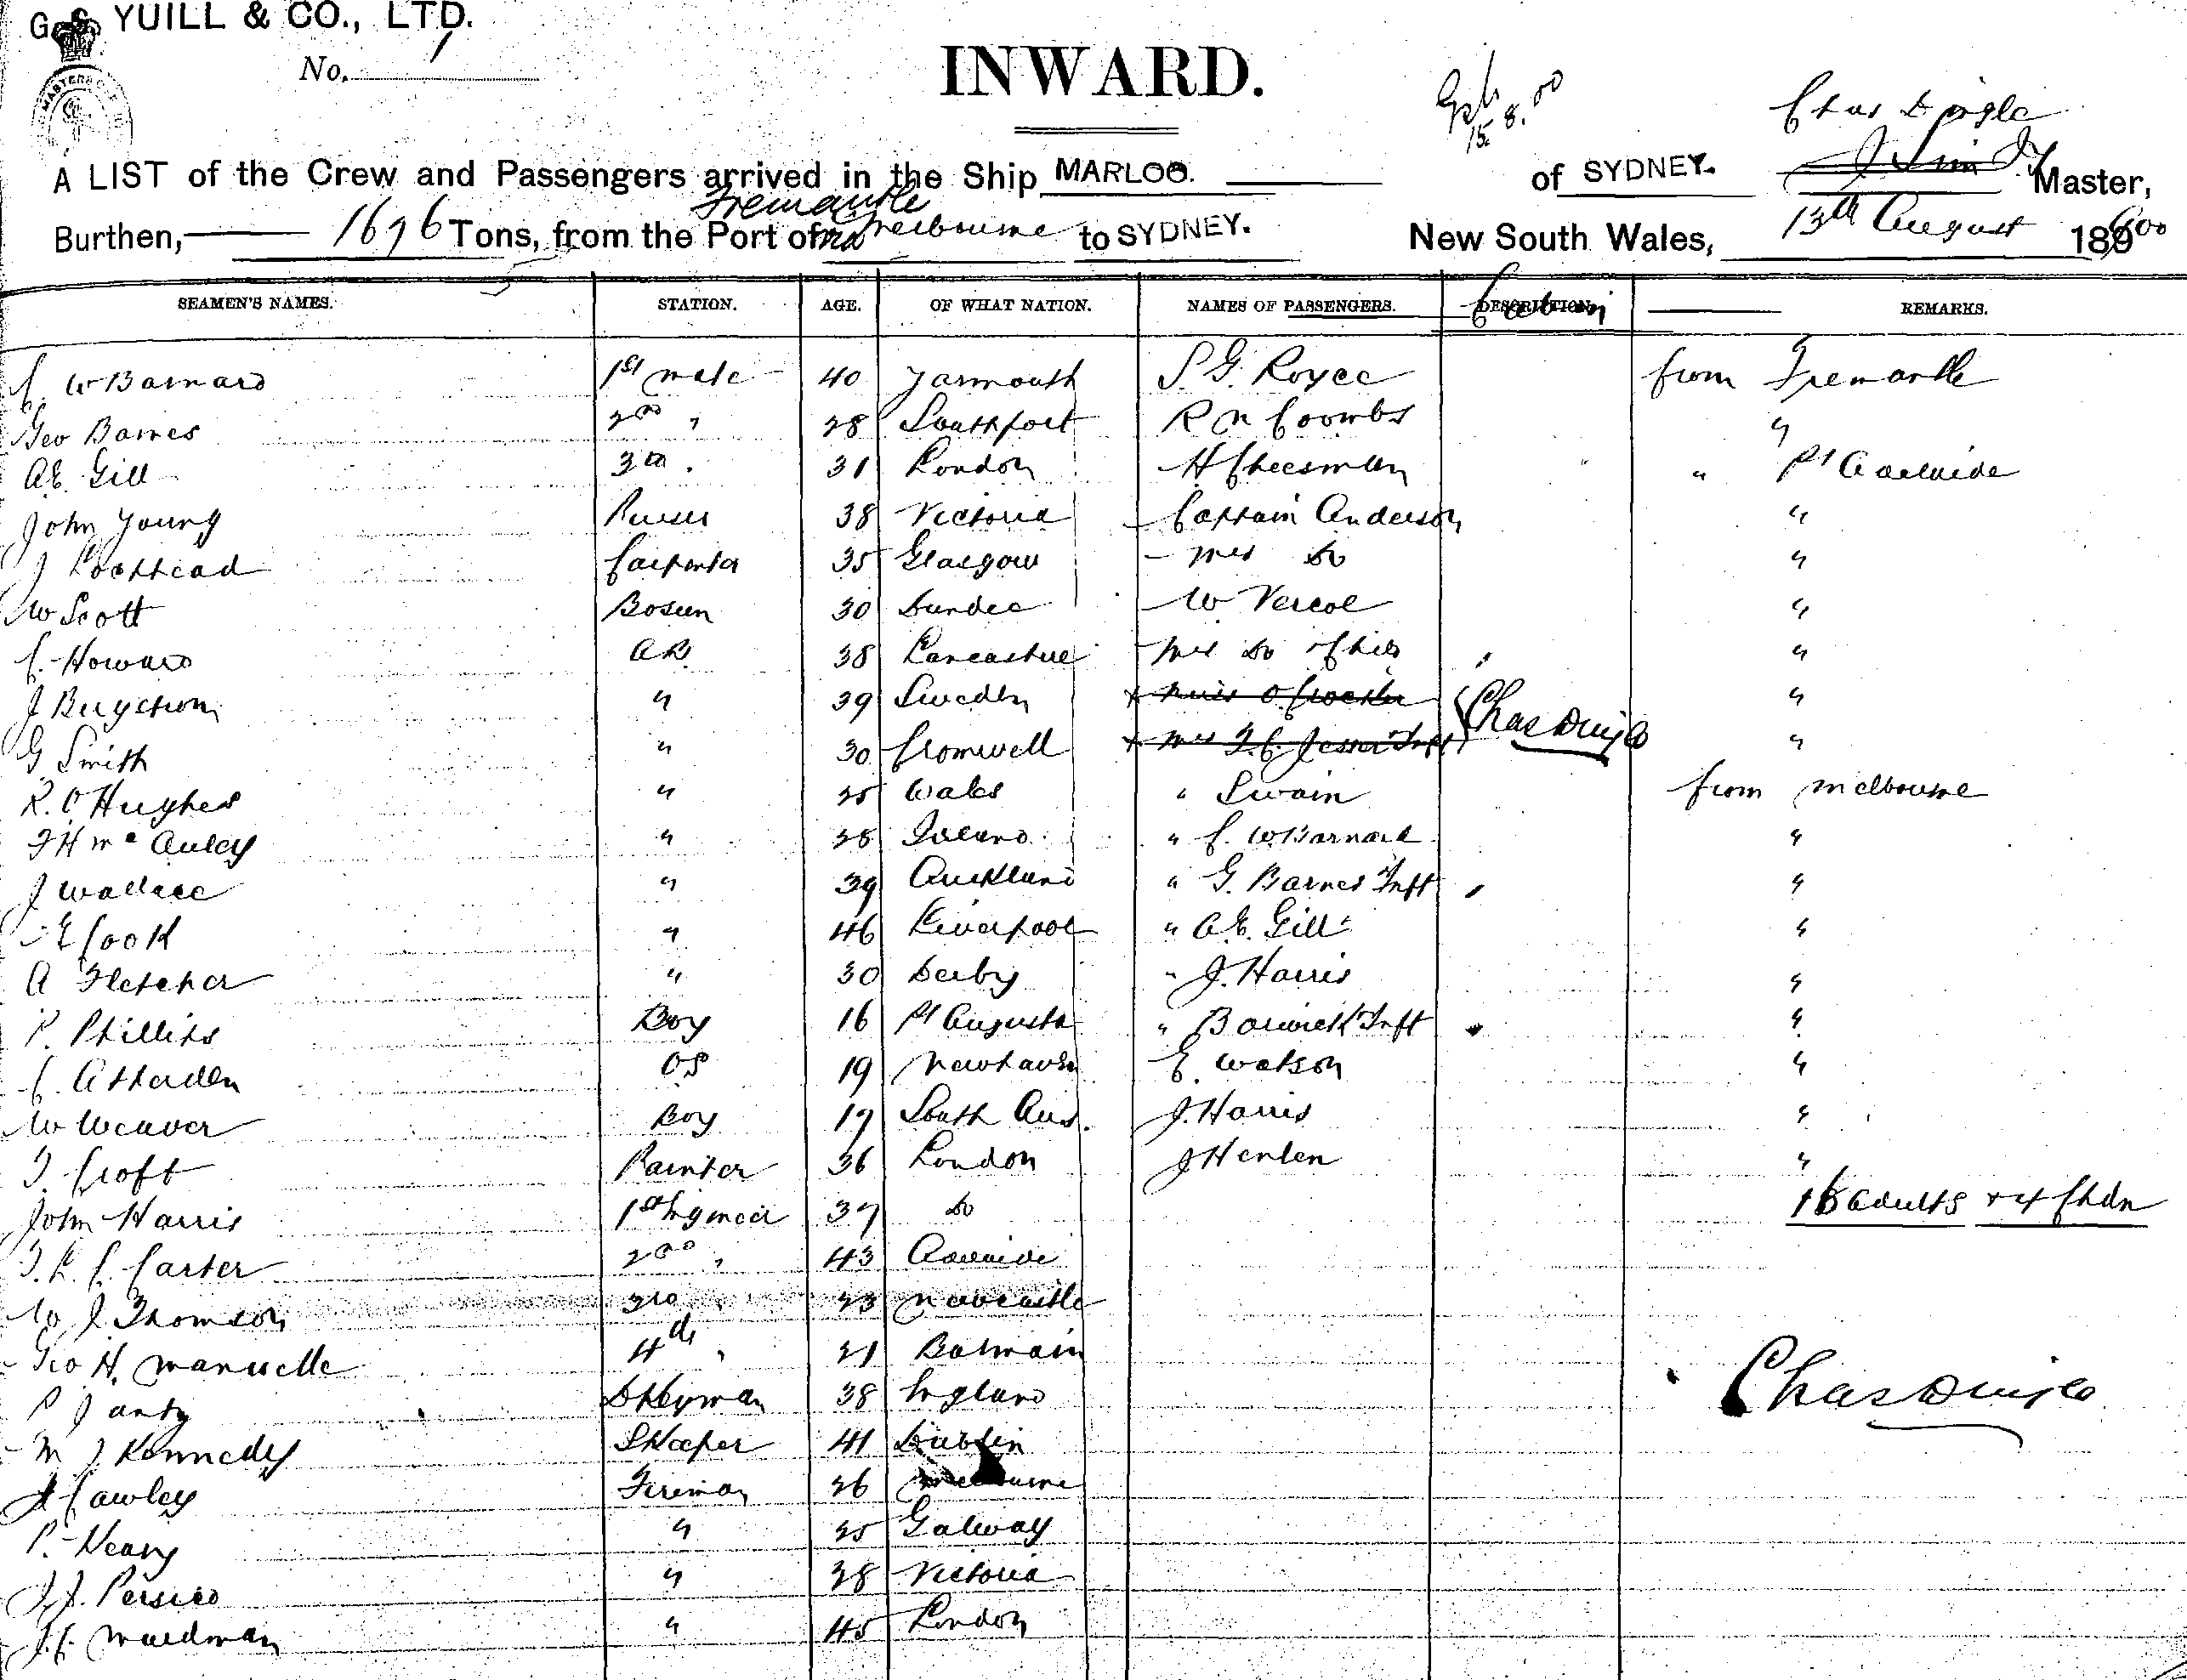 G. S. YUILL & CO., LTD.
No. 1
INWARD.
15.8.00
Chas Dingle
A LIST of the Crew and Passengers arrived in the Ship MARLOO. of SYDNEY. Master,
Fremantle
Burthen, 1696 Tons, from the Port of via Melbourne to SYDNEY. New South Wales, 13th August 1900
SEAMEN'S NAMES. STATION. AGE. OF WHAT NATION. NAMES OF PASSENGERS. DESCRIPTION. Cabin REMARKS.
C. W Barnard 1st mate 40 Yarmouth S. G. Royce from Fremantle
Geo Barnes 2nd " 28 Southport R N Coombs "
A.E. Gill 3rd " 31 London H Cheesman " Pt Adelaide
John Young Purser 38 Victoria Captain Anderson "
J Lochhead Carpenter 35 Glasgow Mrs Do "
W Scott Bosun 30 Dundee W Vercoe "
C. Howard AB 38 Lancashire Mrs Do & Chil "
J Bergstrom " 39 Sweden Miss O. "
G Smith " 30 Cromwell Mrs F. C. Inft Chas Dingle "
R. O Hughes " 25 Wales " Swain from Melbourne
F H McAuley " 28 Ireland " C. W Barnard "
J Wallace " 39 Auckland " G. Barnes Inft "
E Cook " 46 Liverpool " A. E. Gill "
A Fletcher " 30 Derby " J. Harris "
P. Phillips Boy 16 Pt Augusta " Barwick Inft "
C. Atterden OS 19 Newhaven E. Watson "
W Weaver Boy 17 South Aus. J. Harris "
T. Croft Painter 36 London J Henlen "
John Harris 1st Engineer 37 Do 16 adults & 4 Chdn
T. R. C. Carter 2nd " 43 Adelaide
W J Thomson 3rd " 23 Newcastle
Geo H. Manuelle 4th " 21 Balmain
P J Dkeyman 38 England Chas Dingle
M J Kennedy SKeeper 41 Dublin
J Cawley Fireman 26 Melbourne
P. Neary " 25 Galway
J. J. Persico " 28 Victoria
J. C. " 45 London